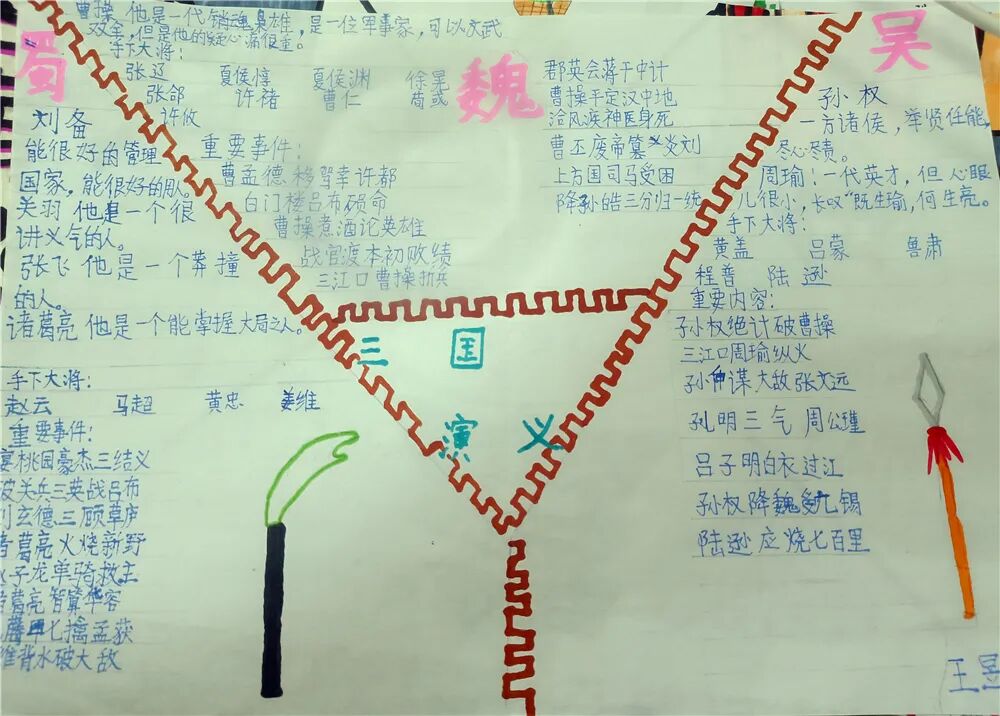 曹操 他是一代销魂枭雄，是一位军事家，可以文武
双全，但是他的疑心病很重。
手下大将：
张辽 夏侯惇 夏侯渊 徐晃
张郃 许褚 曹仁 荀彧
许攸
重要事件：
曹孟德移驾幸许都
白门楼吕布殒命
曹操煮酒论英雄
战官渡本初败绩
三江口曹操折兵
魏
郡英会蒋干中计
曹操平定汉中地
治风疾神医身死
曹丕废帝篡炎刘
上方国司马受困
降孙皓三分归一统
蜀
刘备
能很好的管理
国家，能很好的用人。
关羽 他是一个很
讲义气的人。
张飞 他是一个莽撞
的人。
诸葛亮 他是一个能掌握大局之人。
手下大将：
赵云 马超 黄忠 姜维
重要事件：
宴桃园豪杰三结义
关兵三英战吕布
玄德三顾草庐
葛亮火烧新野
子龙单骑救主
葛亮智算华容
七擒孟获
维背水破大敌
三国
演义
吴
孙权
一方诸侯，举贤任能，
尽心尽责。
周瑜：一代英才，但心眼
儿很小，长叹“既生瑜，何生亮。
手下大将：
黄盖 吕蒙 鲁肃
程普 陆逊
重要内容：
孙权绝计破曹操
三江口周瑜纵火
孙仲谋大敌张文远
孔明三气周公瑾
吕子明白衣过江
孙权降魏受九锡
陆逊应烧七百里
王昱